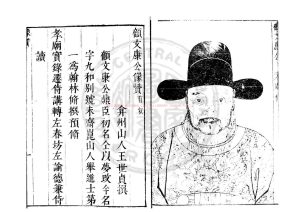 顧文康公像贊
弇州山人王世貞撰
顧文康公鼎臣初名仝以夢改今名
字九和別號未齋崑山人舉進士第
一為翰林脩撰預脩
孝廟實錄遷侍講轉左春坊左諭德兼侍
讀